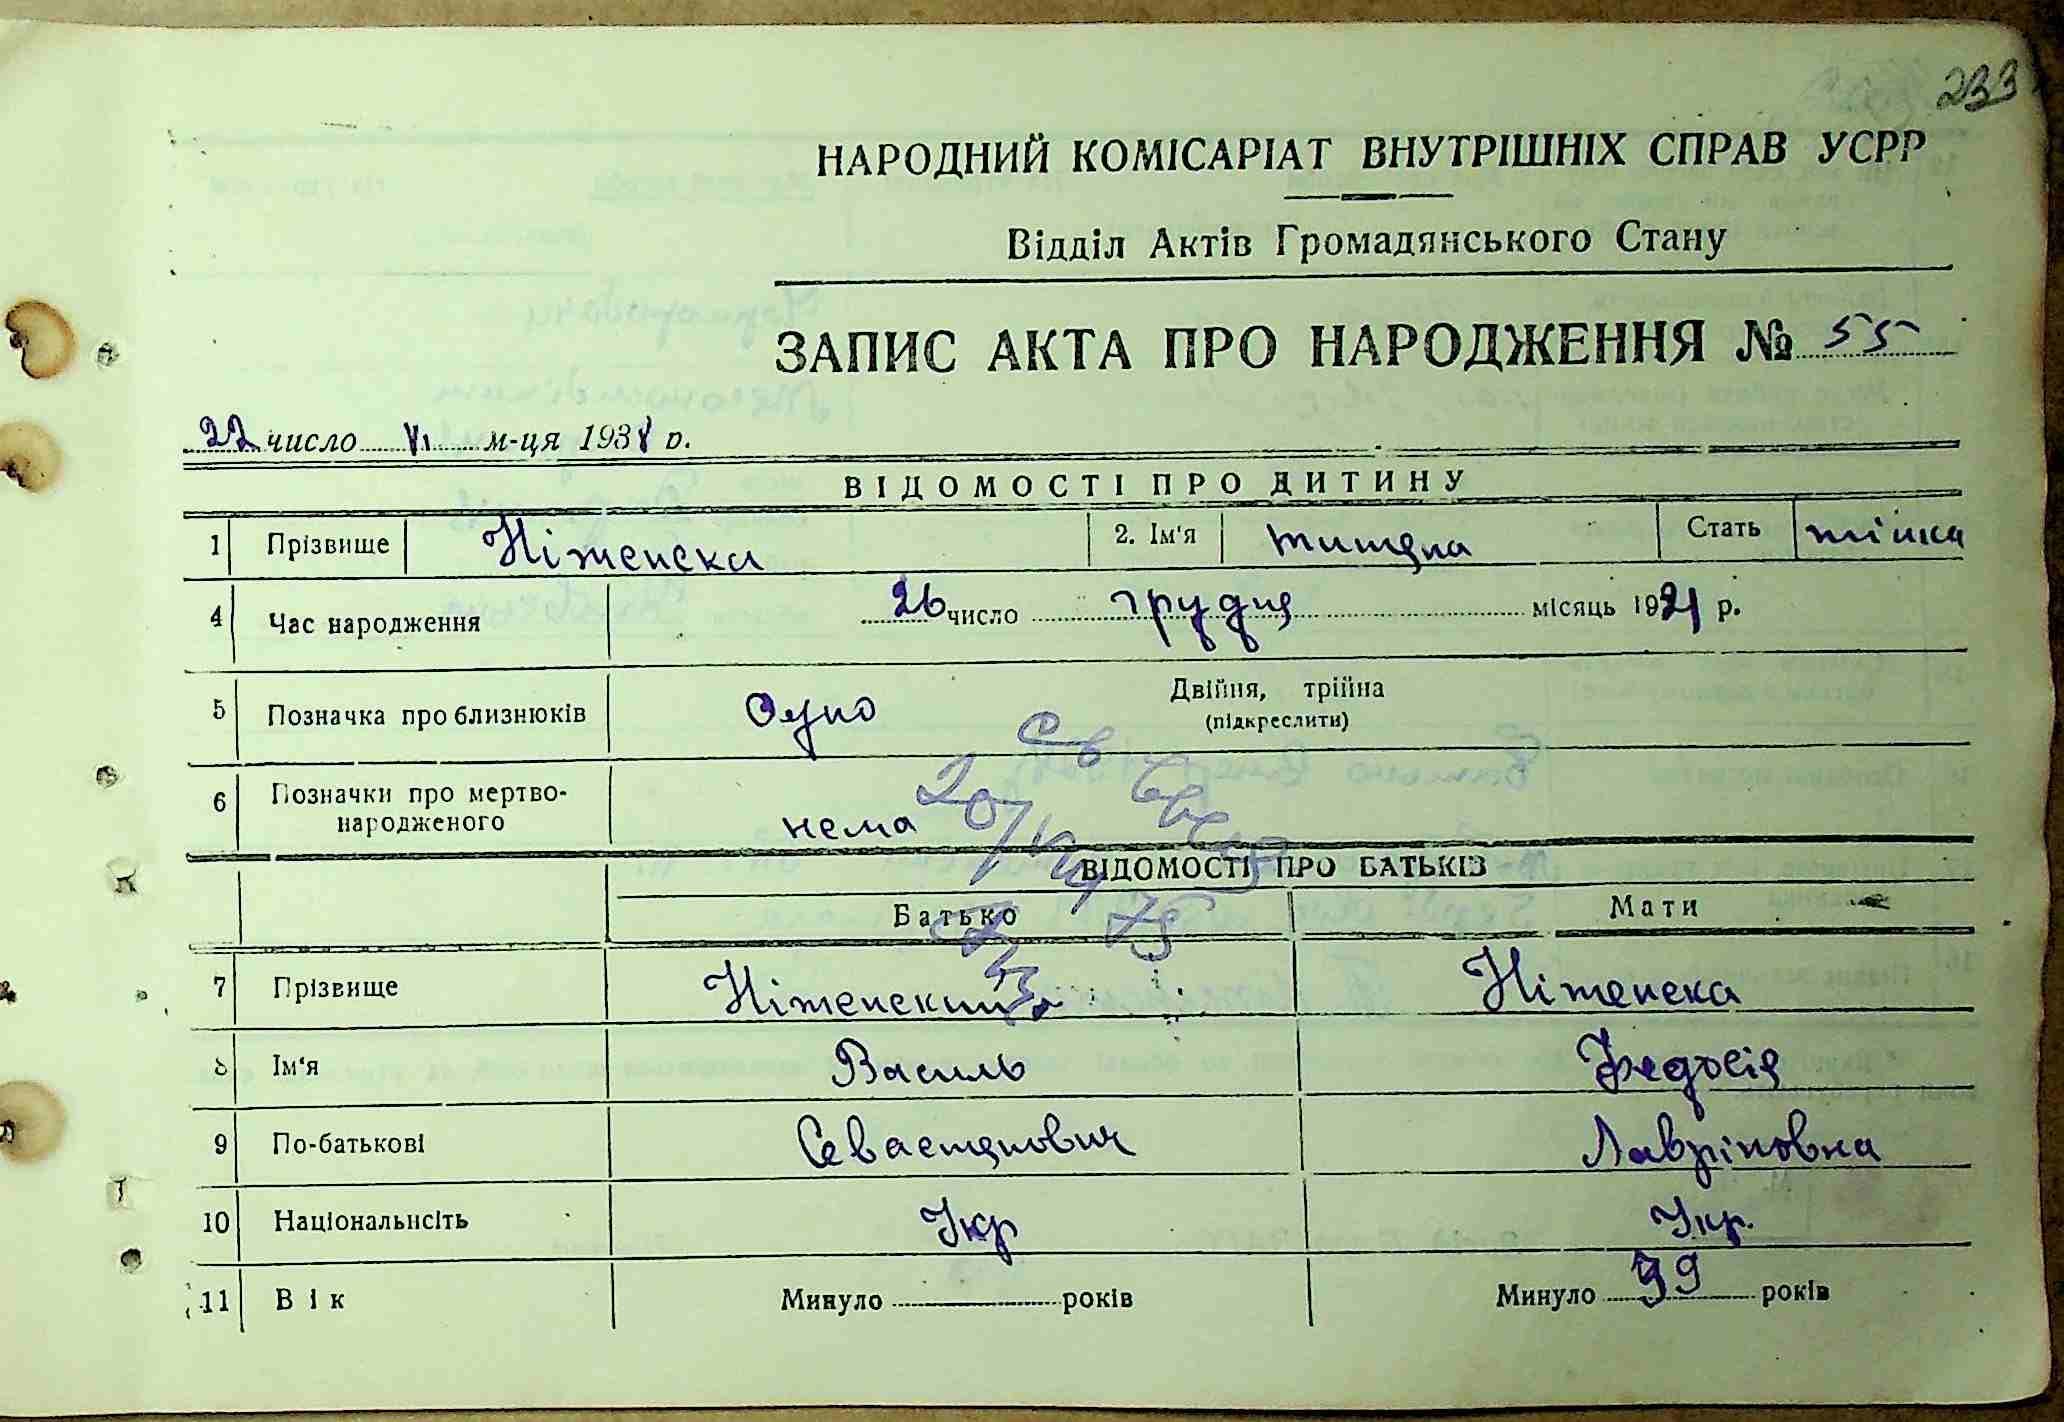 233
НАРОДНИЙ КОМІСАРІАТ ВНУТРІШНІХ СПРАВ УСРР
Відділ Актів Громадянського Стану
ЗАПИС АКТА ПРО НАРОДЖЕННЯ № 55
22 число VI м-ця 1938 р.
ВІДОМОСТІ ПРО ДИТИНУ
1 Прізвище Ніженska 2. Ім'я Стать жінка
4 Час народження 26 число грудня місяць 1921 р.
5 Позначка про близнюків Одно Двійня, трійна
(підкреслити)
6 Позначки про мертво-
народженого нема
Св
20/VII 73
ВІДОМОСТІ ПРО БАТЬКІВ
Батько Мати
7 Прізвище Ніженский Ніженска
8 Ім'я Василь Федосія
9 По-батькові Севастянович Лавріновна
10 Національність Укр Укр.
11 Вік Минуло років Минуло 39 років